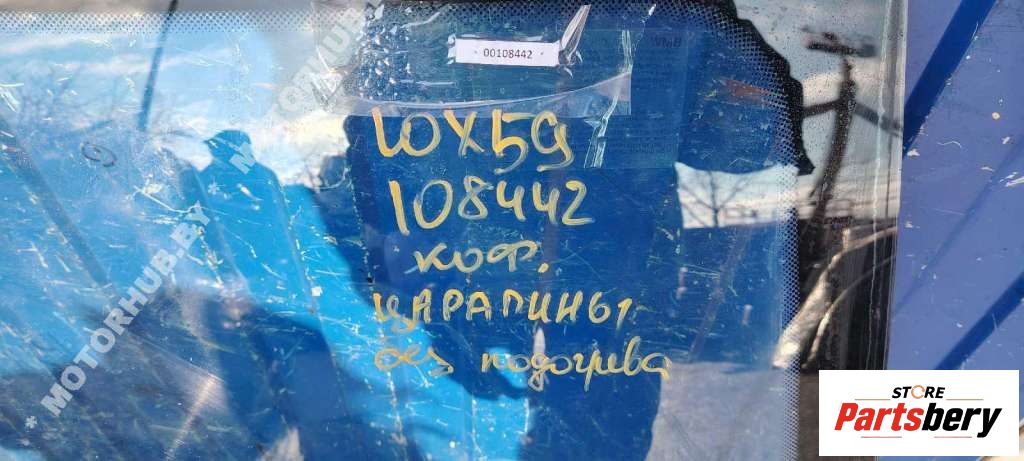 00108442
ЮХ59
108442
коф.
ЦАРАПИНЫ
без подогрева
* MOTORHUB.BY
MOTORHUB.BY
STORE
Partsbery